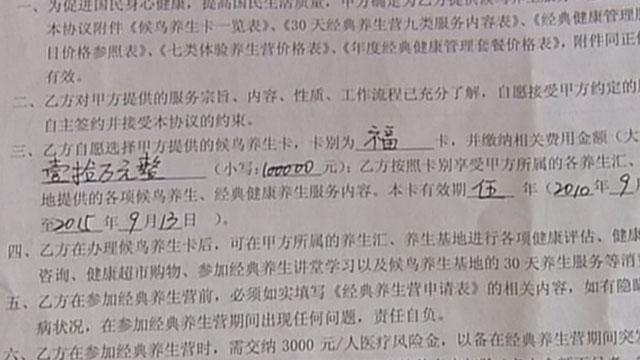 一、为促进国民身心健康,提高国民生活质量,甲方确定为乙方提供候鸟养生
本协议附件《候鸟养生卡一览表》、《30天经典养生营九类服务内容表》、《经典健康管理
目价格参照表》、《七类体验养生营价格表》、《年度经典健康管理套餐价格表》,附件同正
有效。
二、乙方对甲方提供的服务宗旨、内容、性质、工作流程已充分了解,自愿接受甲方约定的
自主签约并接受本协议的约束。
三、乙方自愿选择甲方提供的候鸟养生卡,卡别为 福 卡,并缴纳相关费用金额(大
壹拾万元整 (小写:100000 元);乙方按照卡别享受甲方所属的各养生汇、
地提供的各项候鸟养生、经典健康养生服务内容。本卡有效期 伍 年(2010年9月
至2015年9月13日 )。
四、乙方在办理候鸟养生卡后,可在甲方所属的养生汇、养生基地进行各项健康评估、健康
咨询、健康超市购物、参加经典养生讲堂学习以及候鸟养生基地的30天养生服务等消
五、乙方在参加经典养生营前,必须如实填写《经典养生营申请表》的相关内容,如有隐瞒
病状况,在参加经典养生营期间出现任何问题,责任自负。
六、乙方在参加经典养生营时,需交纳3000元/人医疗风险金,以备在经典养生营期间突